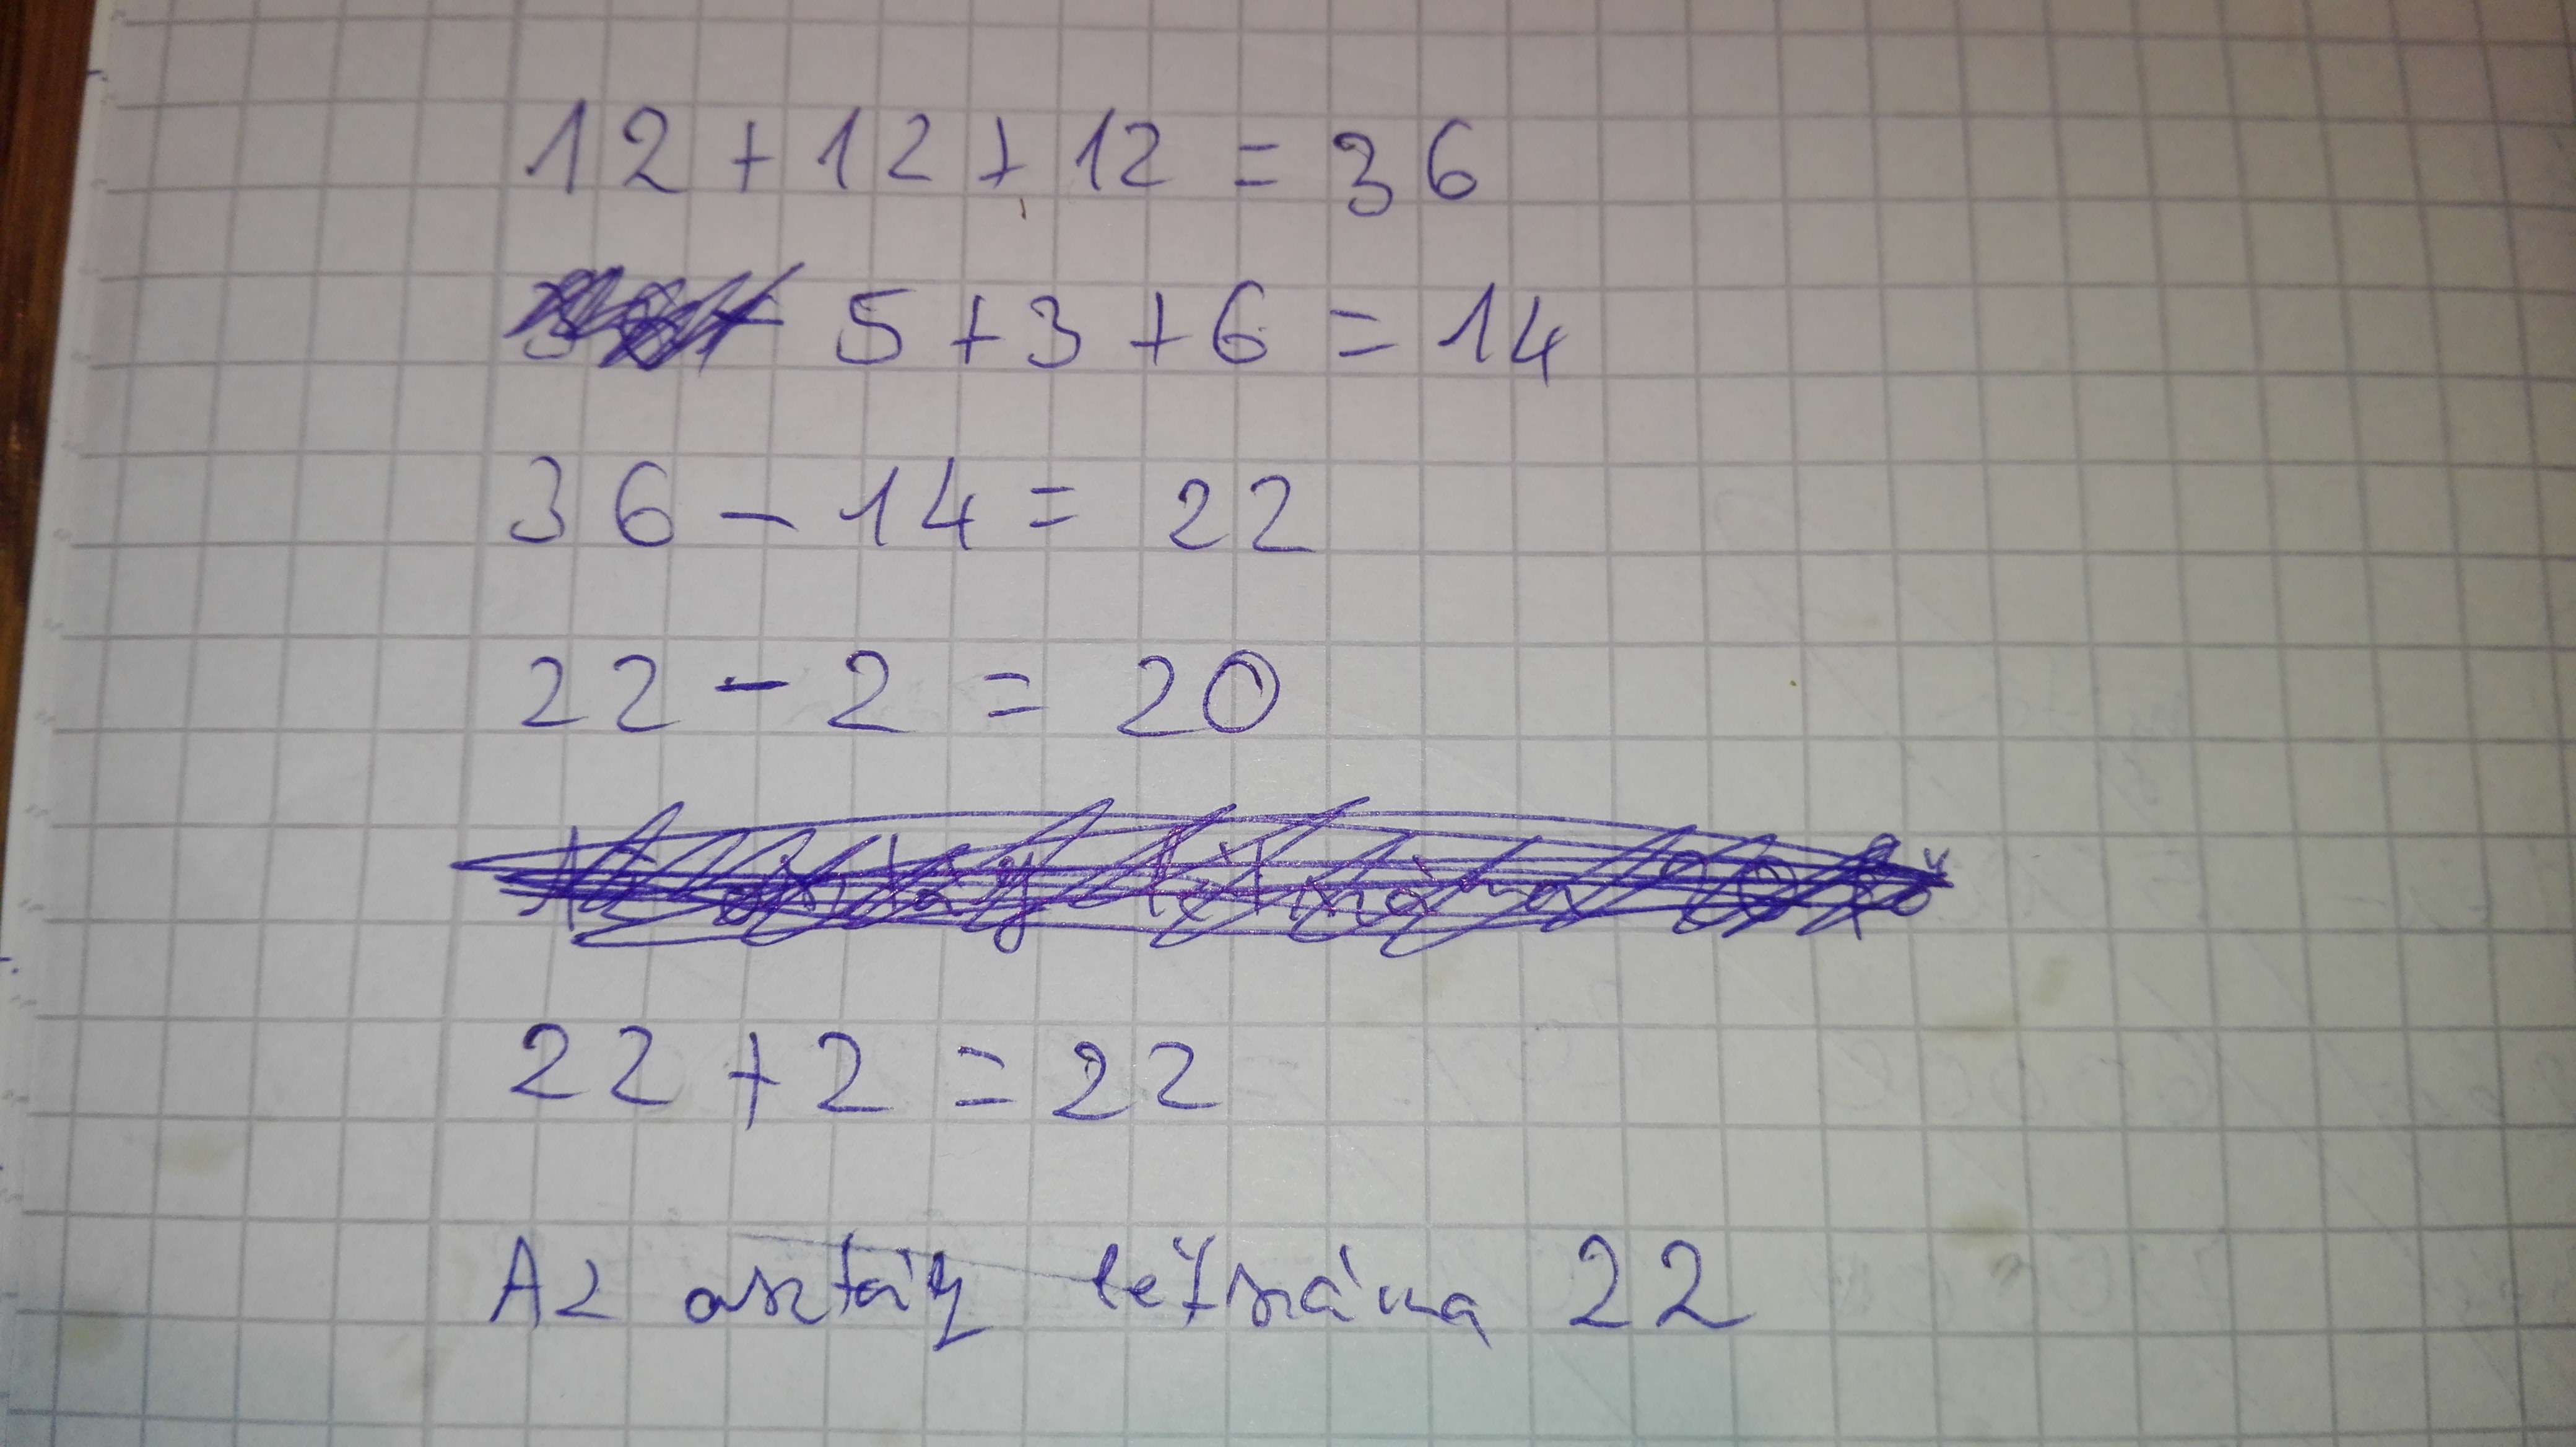 12 + 12 + 12 = 36
5 + 3 + 6 = 14
36 - 14 = 22
22 - 2 = 20
22 + 2 = 22
Az osztály létszáma 22